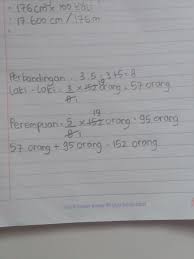 = 176 cm × 100
17.600 cm / 176 m
Perbandingan = 3:5 = 3+5 = 8
Laki-Laki = 3/8 × 152 19 orang = 57 orang
Perempuan = 5/8 × 152 19 orang = 95 orang
57 orang + 95 orang = 152 orang